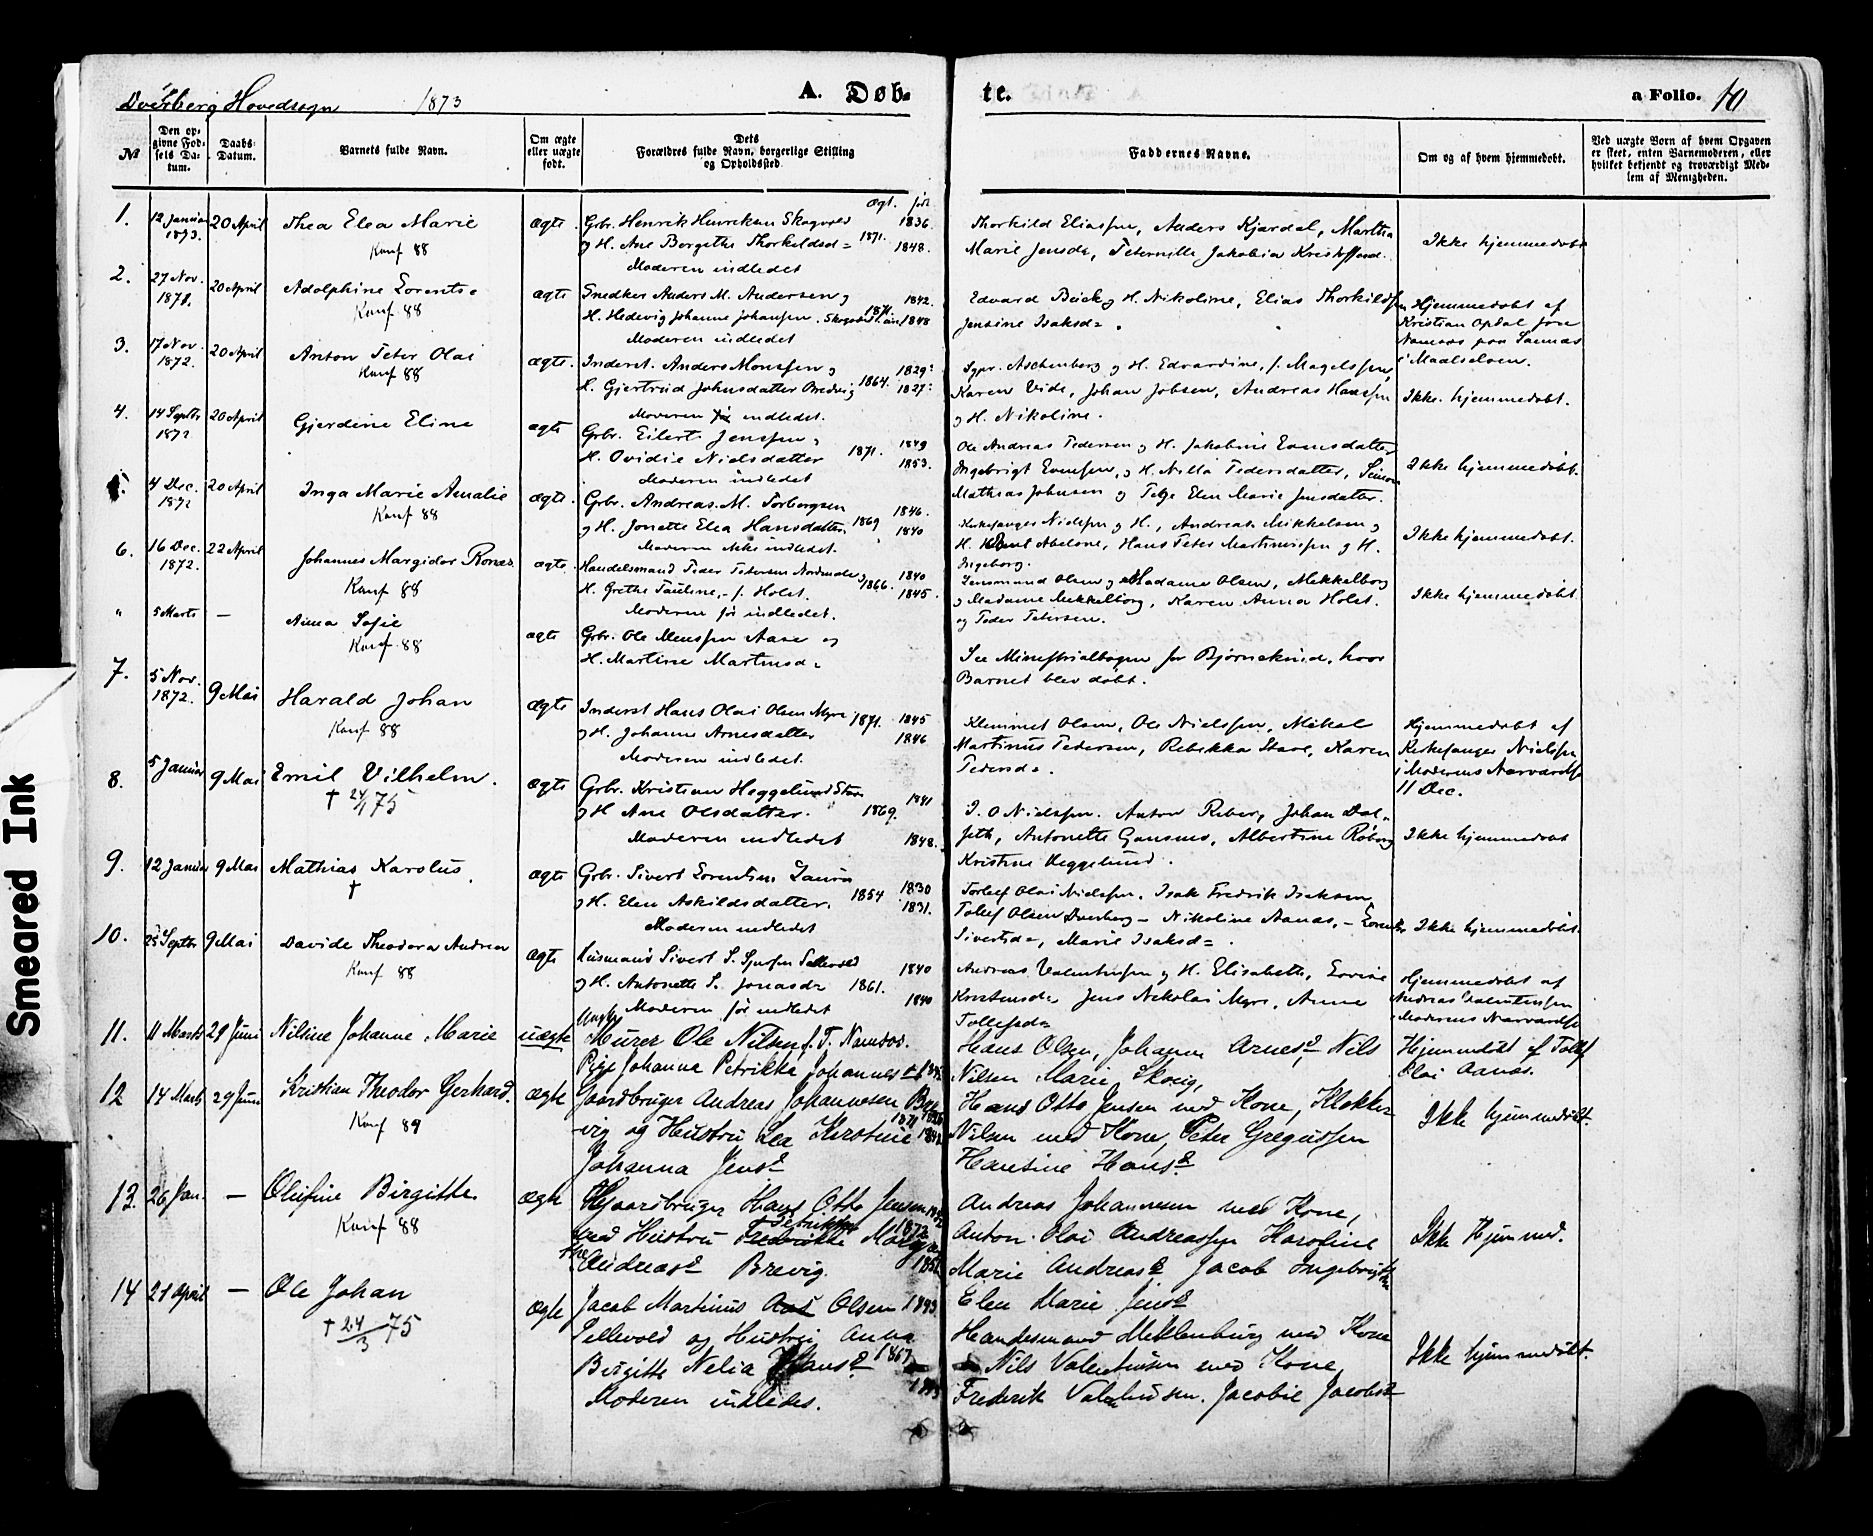 Dverberg Hovedsogn 1873 A. Døb- te. a Folio. 10
№
Den opgivne Fødsels Datum.
Daabs-Datum.
Barnets fulde Navn.
Om ægte eller uægte født.
Dets Forældres fulde Navn, borgerlige Stilling og Opholdssted
Faddernes Navne.
Om og af hvem hjemmedøbt.
Ved uægte Børn af hvem Opgaven er skeet, enten Barnemoderen, eller hvilket bekjendt og troværdigt Medlem af Menigheden.
ægt. født
1. 12 Januar 1873. 20 April Thea Elea Marie ægte.
Konf 88
Grbr. Henrik Henriksen Skogvold 1836
og H. Ane Bergithe Thorkildsd= 1871. 1848.
Moderen indledet
Thorkild Eliassen, Anders Kjørdal, Martha
Marie Jensd=, Peternille Jakobia Kristoffersd.
Ikke hjemmedøbt
2. 27 Nov. 1872. 20 April Adolphine Lorentse ægte
Konf 88
Snedker Anders M. Andersen og 1842.
H. Hedevig Johanne Johansen, 1871. 1848
Moderen indledet
Edvard Beck og H. Nikoline, Elias Thorkildsen
Jensine Isaksd=.
Hjemmedøbt af
Kristian Opdal fra
i Maalselven.
3. 17 Nov. 1872. 20 April Anton Peter Olai ægte.
Konf 88
Inderst. Anders Monssen og 1829.
H. Gjertrud Johnsdatter Bredvig 1864. 1827.
Moderen indledet.
Sgpr. Aschenberg og H. Edvardine, f. Magelssen,
Karen Vide, Johan Jobsen, Andreas Hanssen
og H. Nikoline.
Ikke hjemmedøbt.
4. 14 Septbr 1872 20 April Gjerdine Eline ægte
Grbr. Eilert Jenssen, 1849
H. Ovidie Nielsdatter 1871. 1853.
Moderen indledet
Ole Andreas Pedersen og H. Jakobine Evensdatter
Ingebrigt Evensen, og H. Nilla Pedersdatter, Simon
Mathias Johnsen og Pige Elen Marie Jensdatter.
Ikke hjemmedøbt.
5. 4 Dec. 1872 20 April Inga Marie Amalie ægte.
Konf 88
Grbr. Andreas M. Torbergsen 1846.
og H. Jonette Elea Hansdatter. 1869 1840
Moderen ikke indledet.
Kirkesanger Nielsen og H., Andreas Mikkelsen og
H. Abelone, Hans Peter Martinussen og H.
Ingeborg.
Ikke hjemmedøbt.
6. 16 Dec. 1872. 22 April Johannes Margidor Rones ægte
Konf 88
Handelsmand Peder Petersen 1840
H. Grethe Pauline, f. Holst. 1866. 1845.
Moderen før indledet.
Lensmand Olsen og Madame Olsen, Mekkelborg
og Madame Mekkelborg, Karen Anna Holst.
og Peder Petersen.
Ikke hjemmedøbt
" 5 Marts — Anna Sofie ægte
Konf 88
Grbr. Ole Monssen Aase og
H. Martine Martinsd=
See Ministerialbogen for Bjørnskind, hvor
Barnet blev døbt.
7. 5 Nov. 1872. 9 Mai Harald Johan ægte
Konf 88
Inderst Hans Olai Olsen Myre 1871. 1845
og H. Johanne Arnesdatter 1846
Moderen indledet.
Klemmet Olsen, Ole Nielssen, Mikal
Martinus Pedersen, Rebekka Stave, Karen
Pedersd=.
Hjemmedøbt af
Kirkesanger Nielsen
i Moderens Nærværelse
11 Dec.
8. 5 Januar 9 Mai Emil Vilhelm. ægte
† 24/1 75
Grbr. Kristian Heggelund Stave 1841
og H. Ane Olsdatter. 1869.
Moderen indledet 1848.
J. O Nielssen. Anton Reber, Johan Dal-
seth, Antonette Gansmo, Albertine Røberg
Kristine Heggelund.
Ikke hjemmedøbt
9. 12 Januar 9 Mai Mathias Karolus. ægte
†
Grbr. Sivert Lorentsen 1830
og H. Elen Askildsdatter. 1854 1831.
Moderen indledet
Torlef Olai Nielssen, Isak Fredrik Isaksen,
Tollef Olsen Dverberg — Nikoline Aanas, —
Sivertsd=, Marie Isaksd=.
Ikke hjemmedøbt.
10. 25 Septbr 9 Mai Davide Theodora Andrea ægte
Konf 88
Husmand Sivert S. 1840
og H. Antonette L. Jonasd= 1861. 1840
Moderen før indledet
Andreas Valentinsen og H. Elisabeth,
Kristensd= Jens Nikolai Myre, Anne
Tollefsd=
Hjemmedøbt af
Andreas Valentinsen
i Moderens Nærværelse
11. 11 Marts 29 Juni Nilsine Johanne Marie uægte
Ungk.
Murer Ole Nilsen f. T. Namsos.
Pige Johanna Petrikka Johannesd=
Hans Olsen, Johanna Arnesd Nils
Nilsen Marie Skoug,
Hjemmedøbt af Tollef
Olai Aanas.
12 14 Marts 29 Juni Kristian Theodor Gerhard. ægte
Konf 89
Gaardbruger Andreas Johannesen Bre-
vig og Hustru Lea Kirstine 1871 1842
Johanna Jensd
Hans Otto Jensen med Kone, Klokker
Nilsen med Kone, Peter Gregussen
Hansine Hansd
Ikke hjemmedøbt.
13. 26 Jan. — Olufine Birgitte. ægte
Konf 88
Gaardbruger Hans Otto Jensen
med Hustru Fredrikke 1872
Andreasd Brevig.
Andreas Johannesen med Kone,
Anton Olai Andreassen Karoline
Marie Andreasd Jacob Ingebrigtsen
Elen Marie Jensd
Ikke Hjemmed.
14 21 April — Ole Johan ægte
† 24/3 75
Jacob Martinus Olsen 1843.
Sellevold og Hustru Anna
Birgitte Nelia Hansd 1867
Moderen indledes.
Handelsmand Meklenburg med Kone
Nils Valentinsen med Kone,
Frederik Valentinsen. Jacobie Jacobsd
Ikke hjemmedøbt.
Smeared Ink